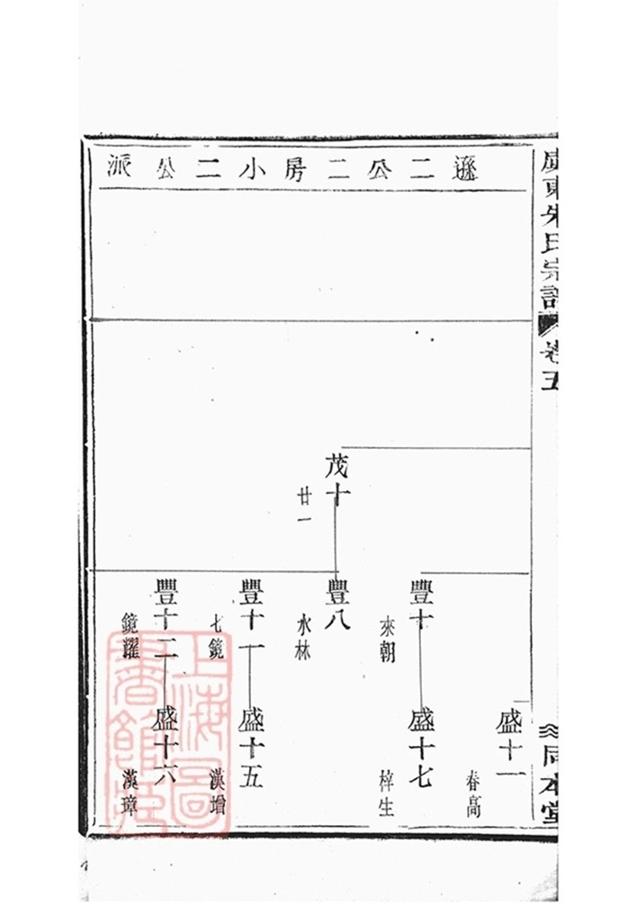 廣東朱氏宗譜
卷五
同本堂
遜二公二房小二公派
盛十一
春高
豐十
盛十七
來朝
棹生
茂十
豐八
廿一
水林
豐十一
盛十五
七鏡
漢增
豐十二
盛十六
鏡耀
漢璋
上海圖書館藏